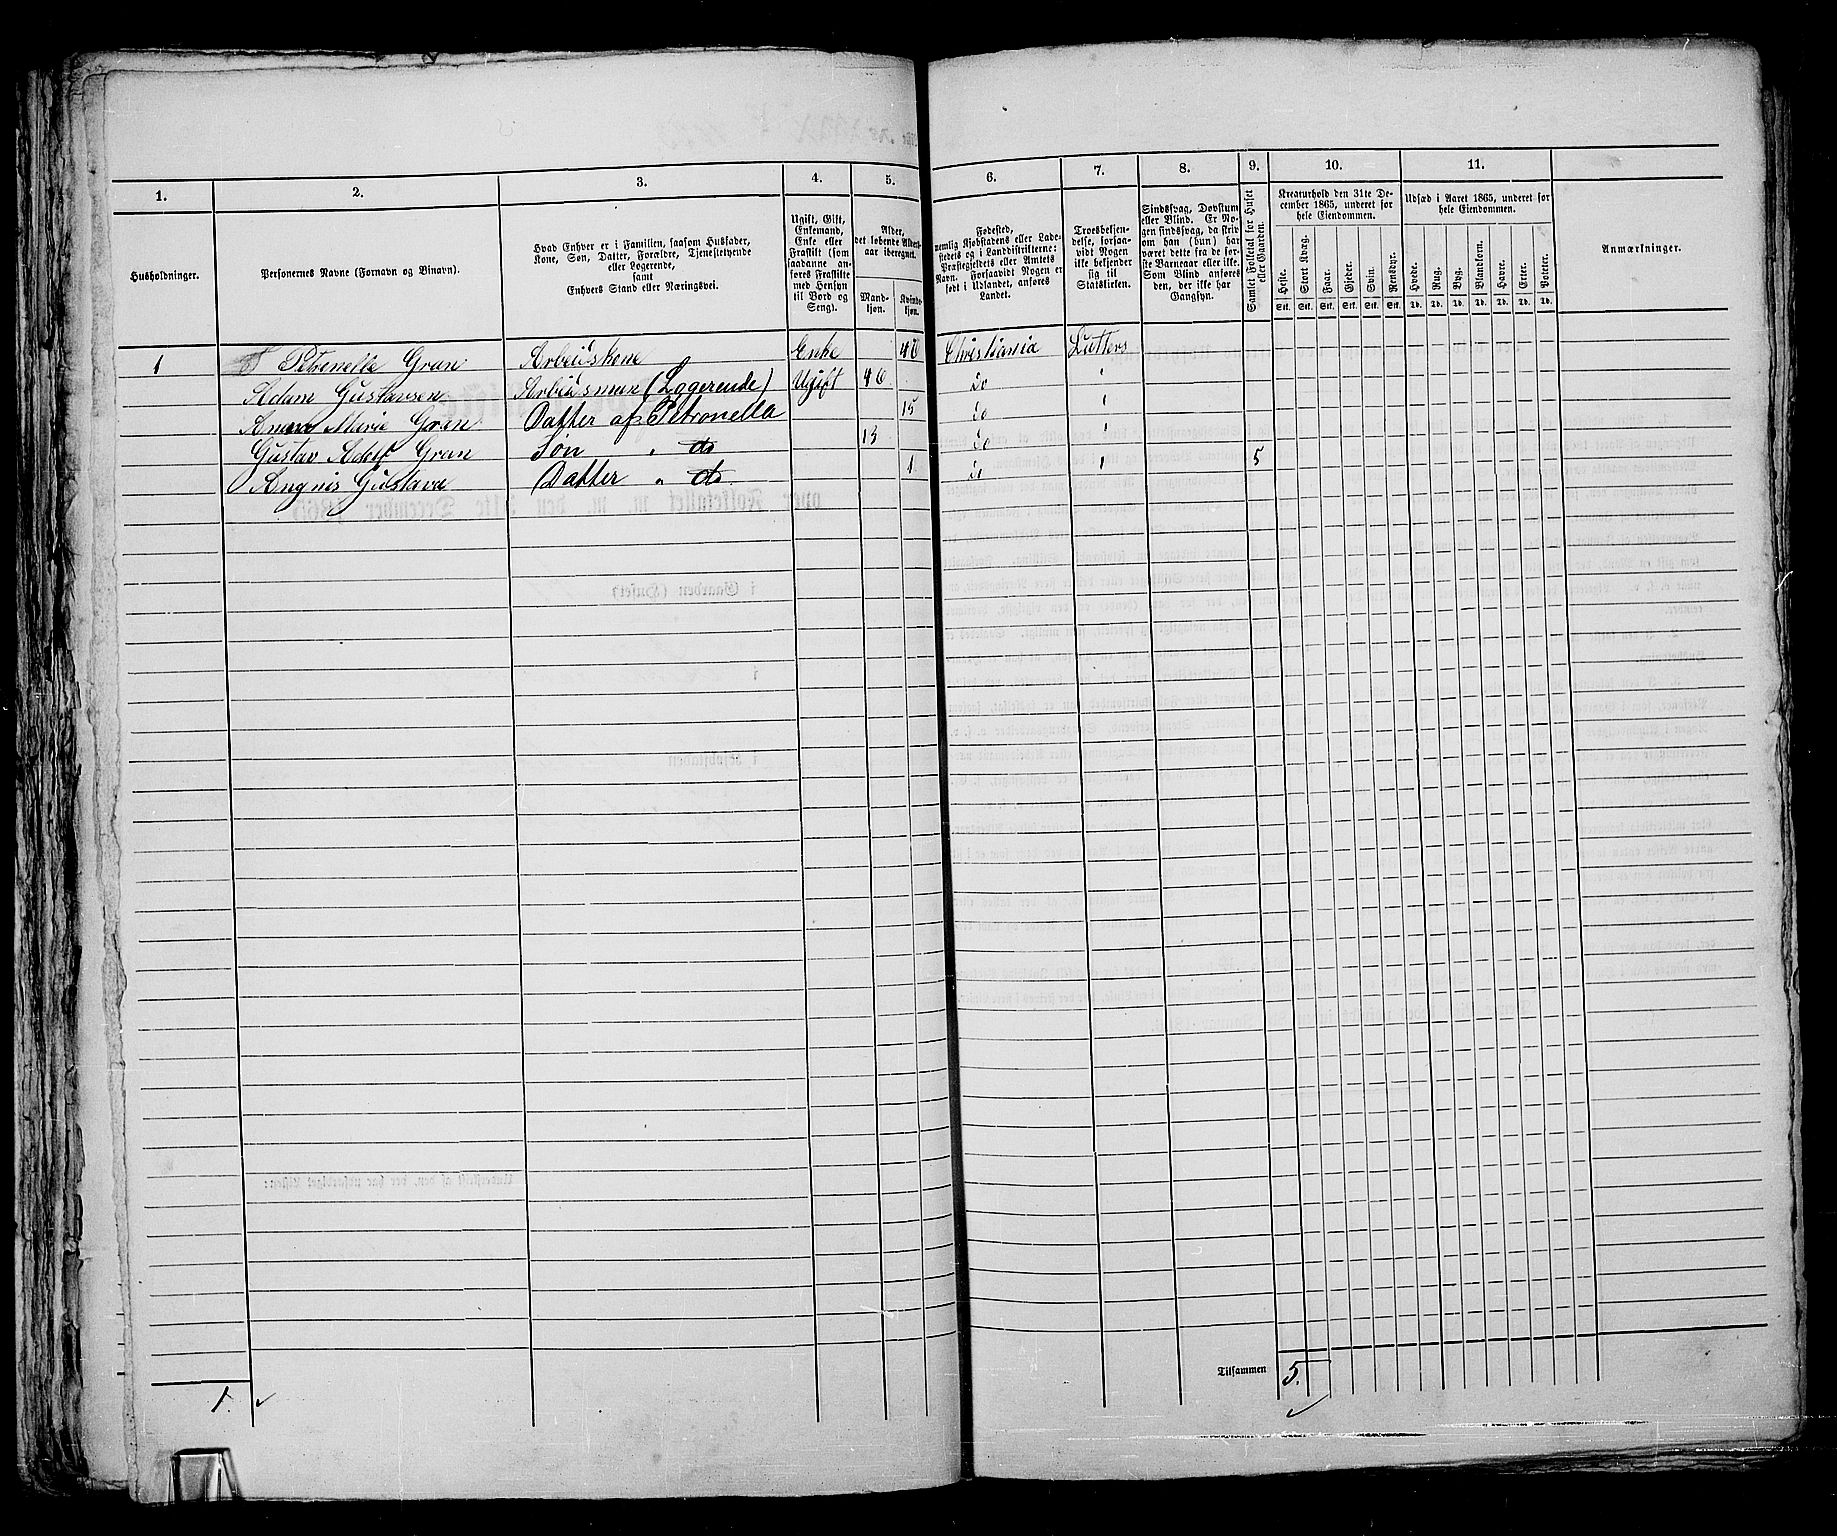 1. 2. 3. 4. 5. 6. 7. 8. 9. 10. 11.
Husholdninger.
Personernes Navne (Fornavn og Binavn).
Hvad Enhver er i Familien, saasom Husfader,
Kone, Søn, Datter, Forældre, Tjenestetyende
eller Logerende,
samt
Enhvers Stand eller Næringsvei.
Ugift, Gift,
Enkemand,
Enke eller
Fraskilt (som
saadanne an-
føres Fraskilte
med Hensyn
til Bord og
Seng).
Alder,
det løbende Alders-
aar iberegnet.
Mand-
kjøn.
Kvinde-
kjøn.
Fødested,
nemlig Kjøbstadens eller Lade-
stedets og i Landdistrikterne:
Præstegjeldets eller Amtets
Navn. Forsaavidt Nogen er
født i Udlandet, anføres
Landet.
Troesbekjen-
delse, forsaa-
vidt Nogen
ikke bekjender
sig til
Statskirken.
Sindssvag, Døvstum
eller Blind. Er No-
gen sindssvag, da skriv
om han (hun) har
været dette fra de før-
ste Barneaar eller ikke.
Som Blind anføres
den, der ikke har
Gangsyn.
Samlet Folketal for Huset
eller Gaarden.
Kreaturhold den 31te De-
cember 1865, underet for
hele Eiendommen.
Heste. Stort Kvæg. Faar. Gjeder. Svin. Rensdyr.
Stk. Stk. Stk. Stk. Stk. Stk.
Udsæd i Aaret 1865, underet for
hele Eiendommen.
Hvede. Rug. Byg. Blandkorn. Havre. Erter. Poteter.
Td. Td. Td. Td. Td. Td. Td.
Anmærkninger.
1 Petronelle Gran Arbeidskone Enke 46 Christiania Lutters
Adam Gustavsen Arbeidsman (Logerende) Ugift 46 do "
Anne Marie Gran Datter af Petronella 15 do "
Gustav Adolf Gran Søn " do 13 do "
Angnis Gustava Datter " do. 1 do " 5
Tilsammen 5.
1.